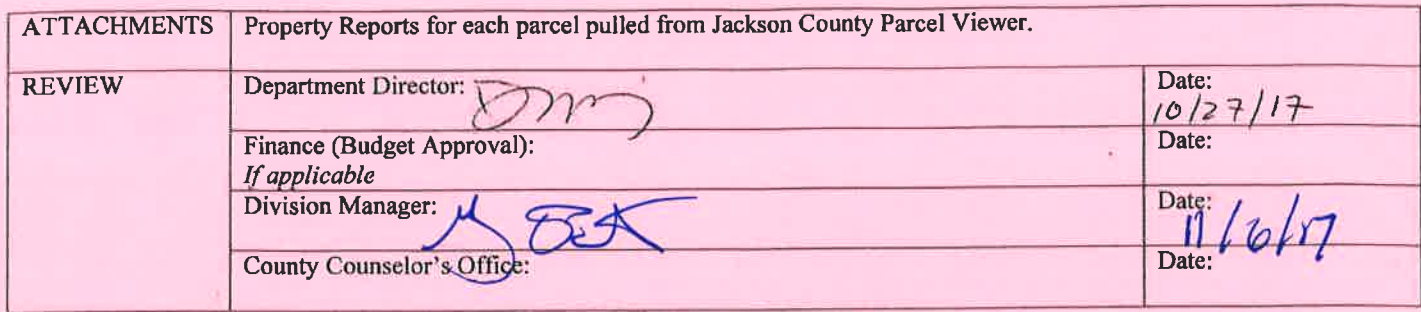 ATTACHMENTS
Property Reports for each parcel pulled from Jackson County Parcel Viewer.
REVIEW
Department Director:
Date:
10/27/17
Finance (Budget Approval):
If applicable
Date:
Division Manager:
Date:
11/6/17
County Counselor's Office:
Date: